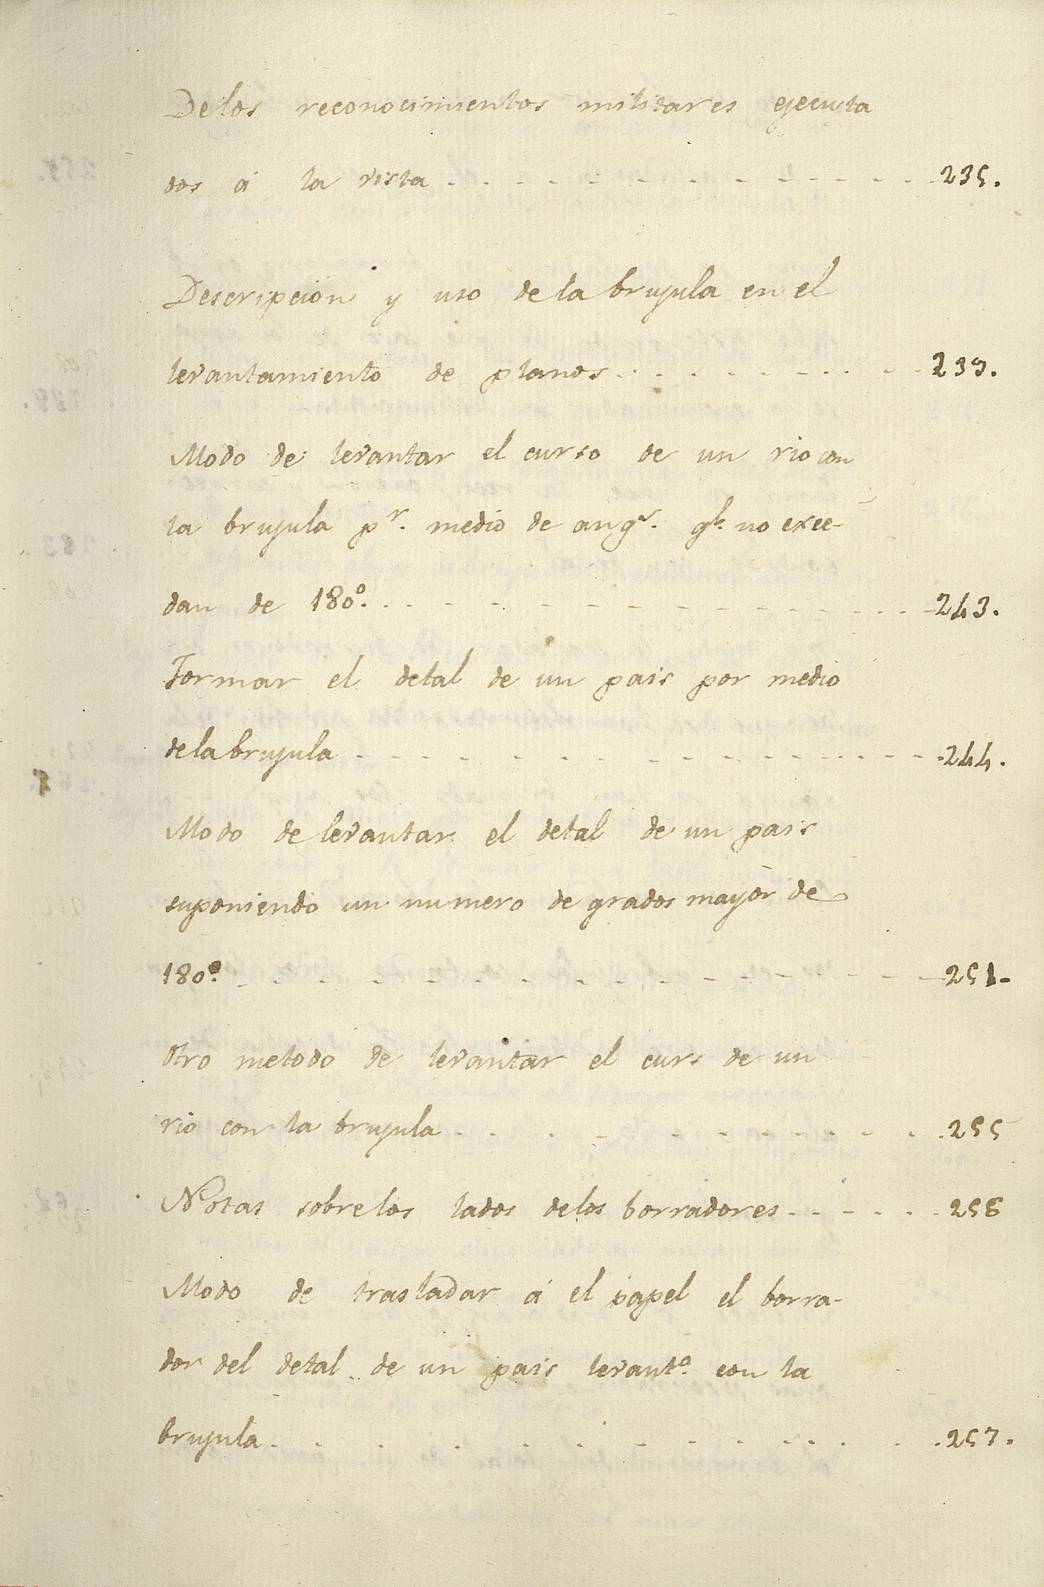 Delos reconocimientos militares ejecuta
dos á la vista . . . . . . . . . . 235.
Descripcion y uso dela brujula en el
levantamiento de planos . . . . . . . . 239.
Modo de levantar el curso de un rio con
la brujula pr. medio de angs. qe. no exce-
dan de 180º. . . . . . . . . . . 243.
Formar el detal de un pais por medio
dela brujula . . . . . . . . . . 244.
Modo de levantar el detal de un pais
suponiendo un numero de grados mayor de
180º. . . . . . . . . . . 251.
Otro metodo de levantar el curs de un
rio con la brujula . . . . . . . . 255
Notas sobre los lados delos borradores . . . . . 256
Modo de trasladar á el papel el borra-
dor del detal de un pais levanto. con la
brujula . . . . . . . . . . 257.